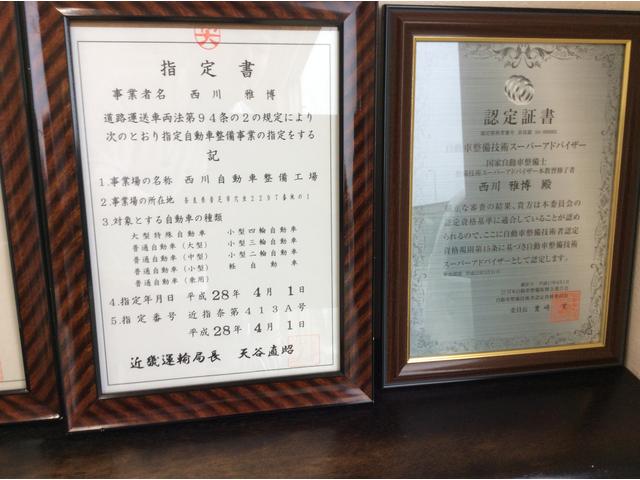 指定書
事業者名 西川 雅博
道路運送車両法第94条の2の規定により
次のとおり指定自動車整備事業の指定をする
記
1.事業場の名称 西川自動車整備工場
2.事業場の所在地
3.対象とする自動車の種類
大型特殊自動車 小型四輪自動車
普通自動車(大型) 小型三輪自動車
普通自動車(中型) 小型二輪自動車
普通自動車(小型) 軽自動車
普通自動車(乗用)
4.指定年月日 平成28年4月1日
5.指定番号 近指奈第413A号
平成28年4月1日
近畿運輸局長 天谷直昭
認定証書
自動車整備技術スーパーアドバイザー
国家自動車整備士
整備技術スーパーアドバイザー本教育修了者
西川 雅博 殿
厳正な審査の結果、貴方は本委員会の
認定資格基準に適合していることが認め
られるので、ここに自動車整備技術者認定
資格規則第15条に基づき自動車整備技術
スーパーアドバイザーとして認定します。
自動車整備技術者認定資格委員会
委員長